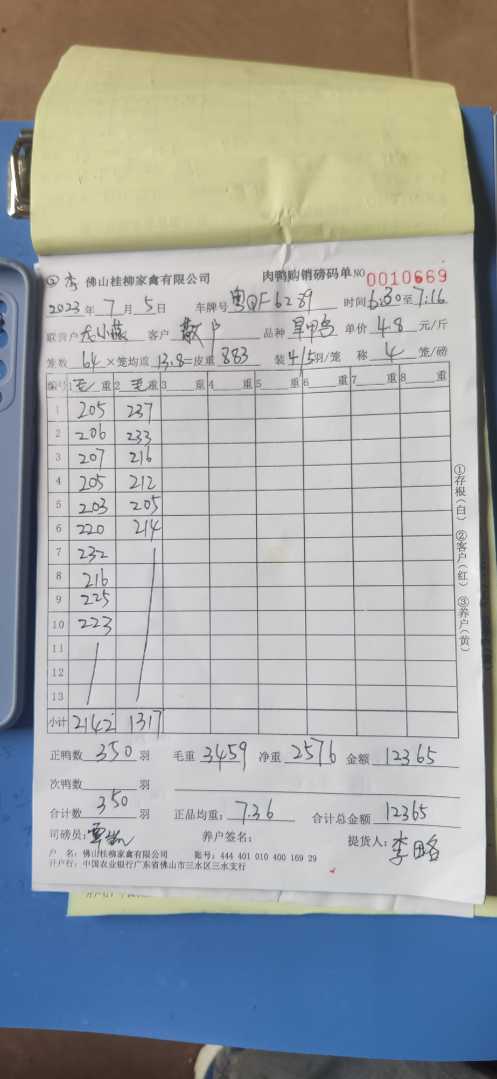 佛山桂柳家禽有限公司 肉鸭购销磅码单 NO 0010669
2023年 7月 5日 车牌号 粤QF6289 时间 6:30至7:16
联营户 客户 散户 品种 单价 48 元/斤
笼数 64 ×笼均重 13.8=皮重 883 装4/5羽/笼 称 4 笼/磅
编号 1 毛 重 2 毛 重 3 重 4 重 5 重 6 重 7 重 8 重
1 205 237
2 206 233
3 207 216
4 205 212
5 203 205
6 220 214
7 232
8 216
9 225
10 223
11
12
13
小计 2142 1317
①存根(白) ②客户(红) ③养户(黄)
正鸭数 350 羽 毛重 3459 净重 2576 金额 12365
次鸭数 羽
合计数 350 羽 正品均重: 7.36 合计总金额 12365
司磅员: 养户签名: 提货人: 李
户 名: 佛山桂柳家禽有限公司 账号: 444 401 010 400 169 29
开户行: 中国农业银行广东省佛山市三水区三水支行